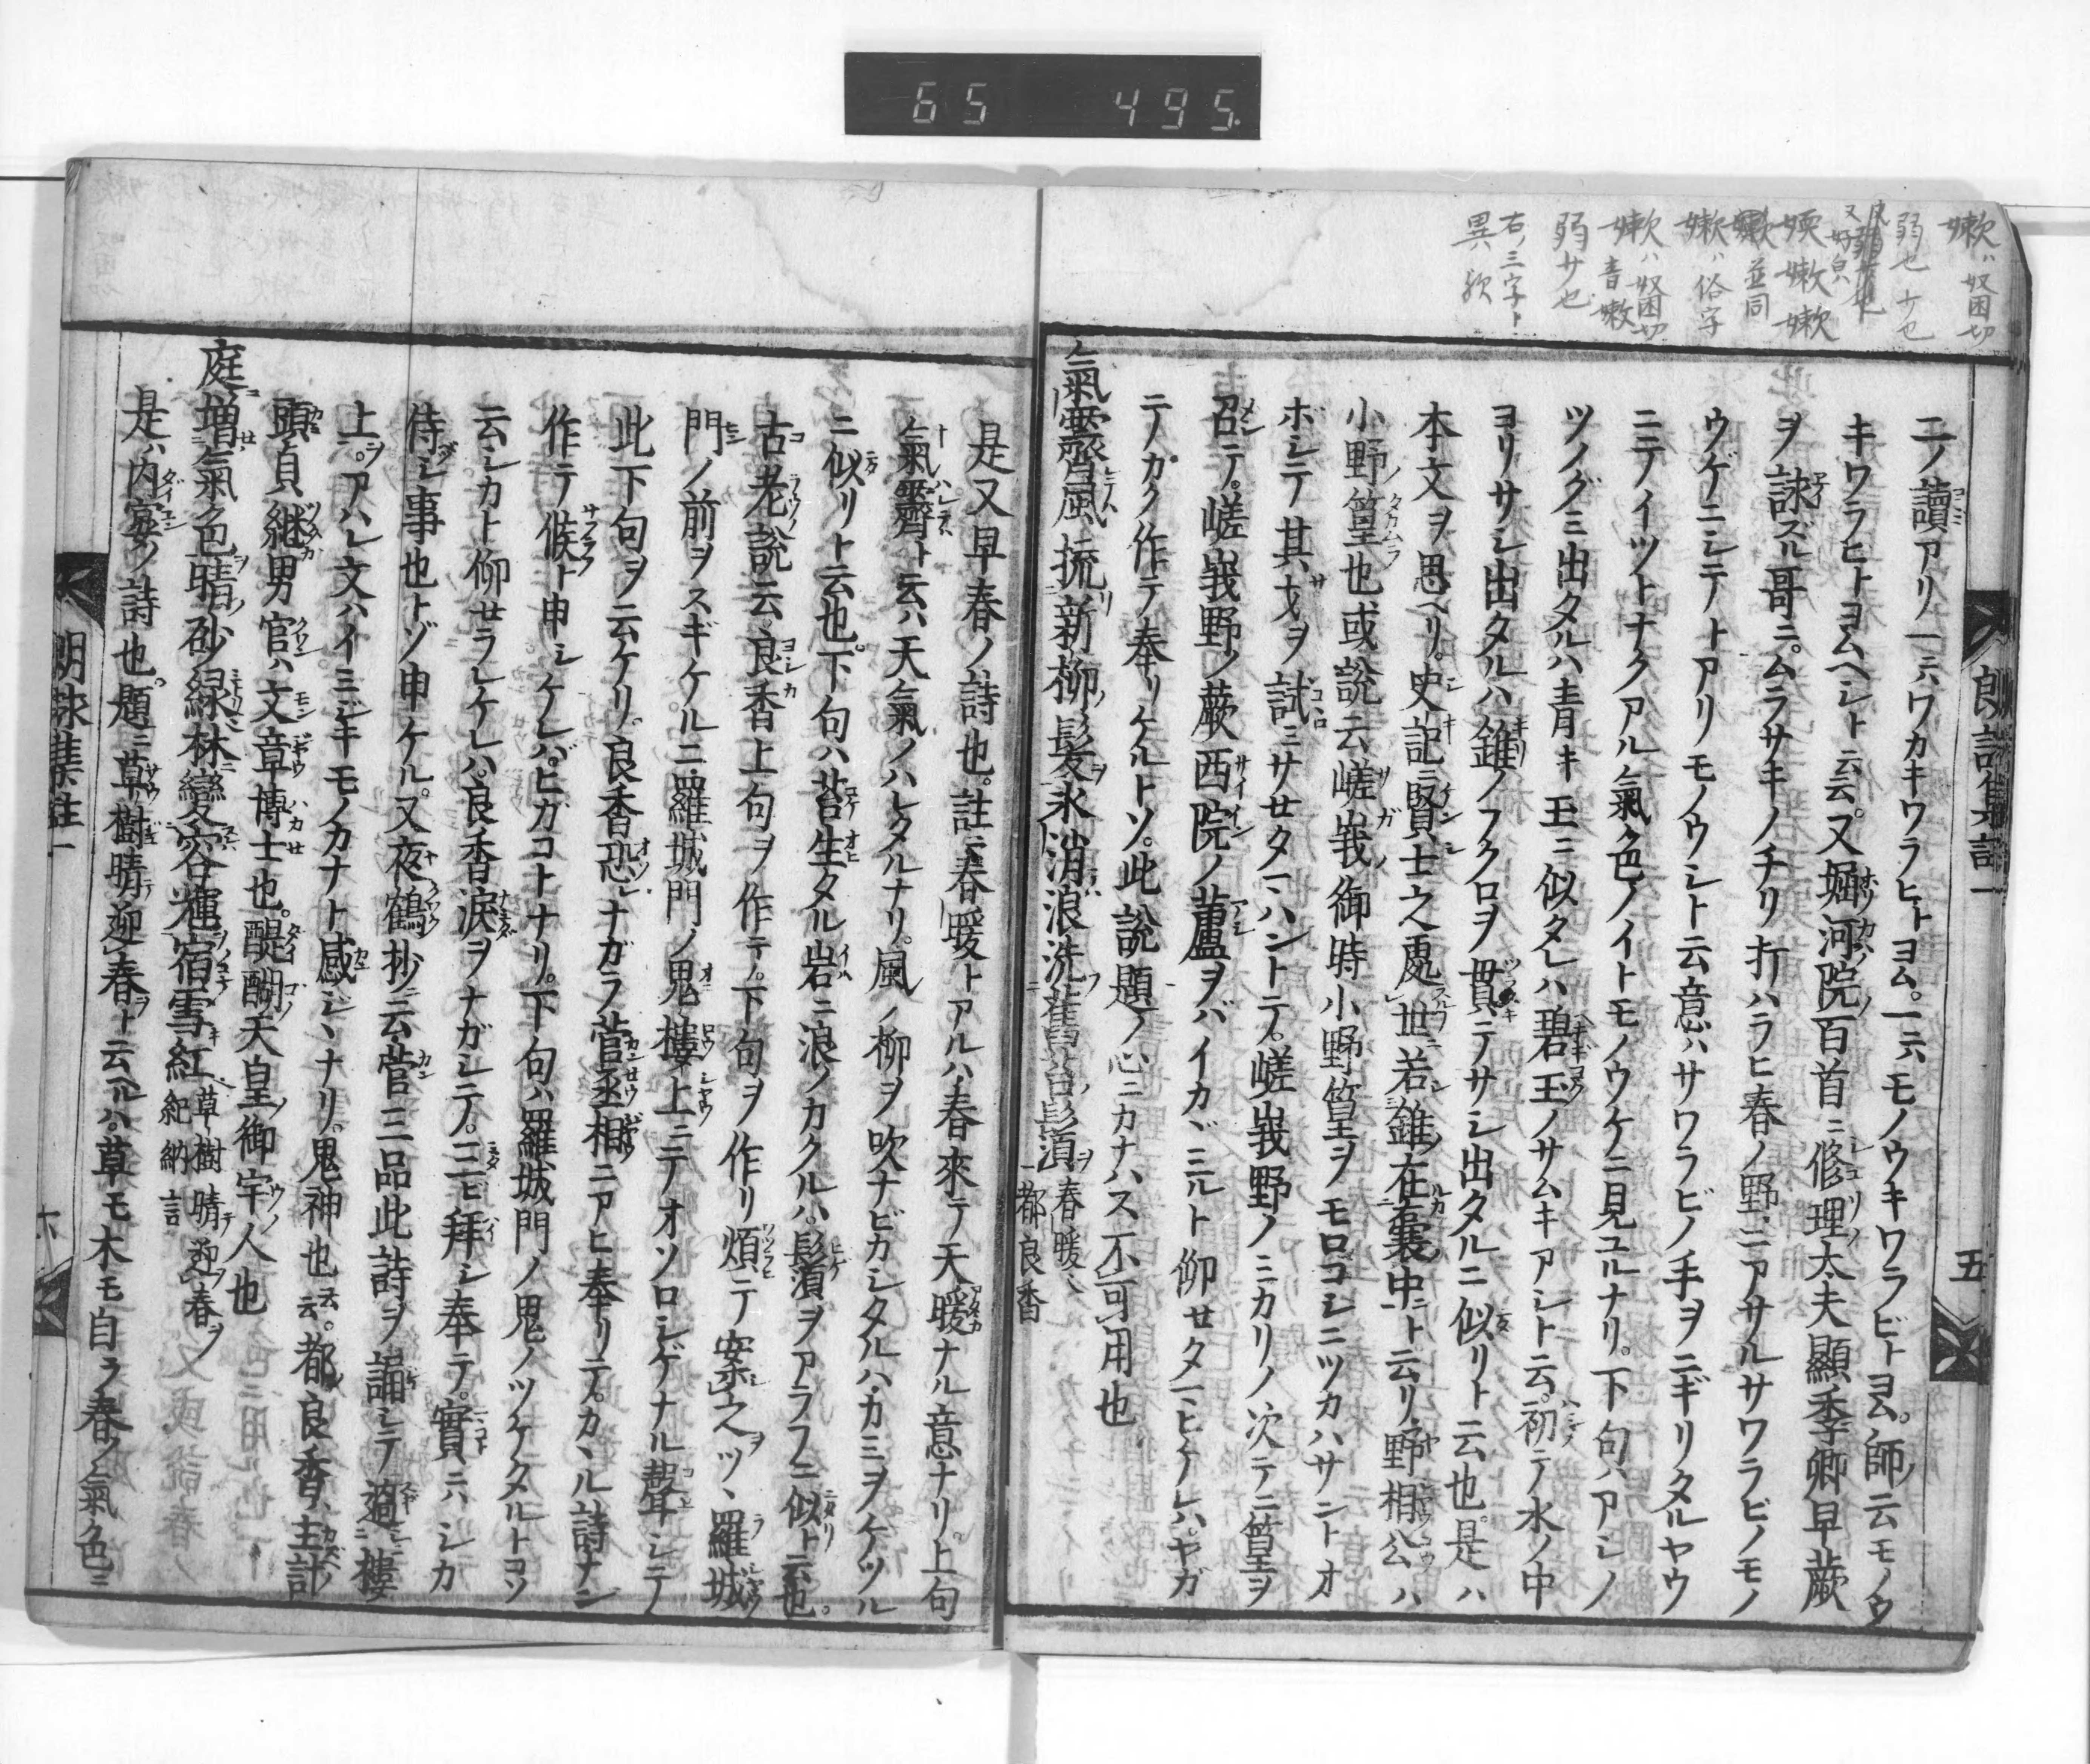 65 495.
嫩ハ奴困切
弱也少也
嫩ハ俗字
嫩ハ奴困切
音嫩
弱サ也
右ノ三字ト
異ハ歟
朗詠集註一
五
二ノ讀アリ一ニハワカキワラヒトヨム。一ニハモノウキワラビトヨム。師ノ云モノウ
キワラヒトヨムヘシト云云。又堀河院百首ニ修理太夫顯季卿早蕨
ヲ詠ズル哥ニ。ムラサキノチリ打ハラヒ春ノ野ニアサルサワラビノモノ
ウゲニシテトアリモノウシト云意ハサワラビノ手ヲニギリタルヤウ
ニテイツトナクアル氣色ノイトモノウケニ見ユルナリ。下句ハアシノ
ツノグミ出タルハ青キ玉ニ似タレハ碧玉ノサムキアシト云。初テ水ノ中
ヨリサシ出タルハ錐ノフクロヲ貫テサシ出タルニ似リト云也。是ハ
本文ヲ思ヘリ。史記ニ賢士之處世若錐在嚢中ト云リ。野相公ハ
小野篁也或說云嵯峩御時小野篁ヲモロコシニツカハサントオ
ボシテ其才ヲ試ニサセタマハントテ。嵯峩野ノミカリノ次テニ篁ヲ
召テ。嵯峩野ノ蕨西院ノ蘆ヲバイカヾミルト仰セタマヒケレハ。ヤガ
テカク作テ奉リケルトソ。此說題ノ心ニカナハス不可用也
氣霽風梳新柳髮氷消浪洗舊苔鬚 春暖 都良香
是又早春ノ詩也。註ニ春暖トアルハ春來テ天暖ナル意ナリ。上句
ニ氣霽ト云ハ天氣ノハレタルナリ。風ノ柳ヲ吹ナビカシタルハカミヲケツル
ニ似リト云也。下句ハ苔生タル岩ニ浪ノカクルハ鬚ヲアラフニ似リト云也。
古老說云良香上句ヲ作テ。下句ヲ作リ煩テ案之ツヽ羅城
門ノ前ヲスギケルニ羅城門ノ鬼樓上ニテオソロシゲナル聲シテ
此下句ヲ云ケリ。良香恐ナガラ菅丞相ニアヒ奉リテ。カヽル詩ナン
作テ候ト申シケレバ。ヒガコトナリ。下句ハ羅城門ノ鬼ノツケタルトコソ
云シカト仰セラレケレハ。良香淚ヲナガシテ。二ビ拜シ奉テ。實ニハシカ
侍シ事也トゾ申ケル。又夜鶴抄ニ云菅三品此詩ヲ誦シテ過樓
上ヲ。アハレ文ハイミジキモノカナト感ジヽナリ。鬼神也云云。都良香ハ主計
頭貞継男官ハ文章博士也。醍醐天皇御宇ノ人也
庭增氣色晴砂綠林變容輝宿雪紅 草樹晴迎春 紀納言
是ハ内宴ノ詩也。題ニ草樹晴迎春ト云ヘルハ。草モ木モ自ラ春ノ氣色ニ
朗詠集註一
六